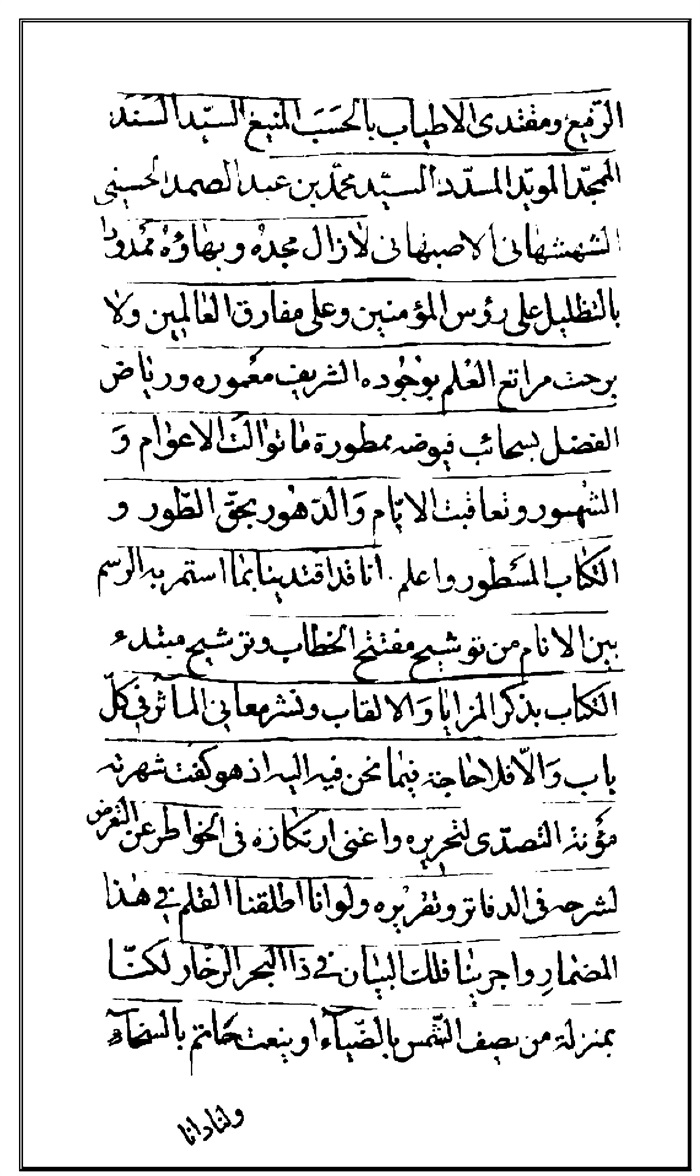 الرّفيع ومقتدى الاطياب بالحَسَبَ المنيع السيّد السَنَد
الممجّد المويّد المسدّد السيّد محمّد بن عبد الصمد الحسينى
الشهشهانى الاصبهانى لازال مجده وبهاؤه ممدودا
بالتظليل على رؤس المؤمنين وعلى مفارق العالمين ولا
برحت مراتع العلم بوجوده الشريف معموره ورياض
الفضل بسحائب فيوضه ممطورة ما توالت الاعوام وَ
الشهور وتعاقبت الايّام وَالدّهور بحقّ الطّور و
الكتاب المسَطور واعلم انا قد اقتدينا بما استمر به الرسم
بين الانام من توشيح مفتتح الخطاب وترشيح مبتدء
الكتاب بذكر المزايا وَالالقاب ونشر معانى المآثر في كلّ
باب وَالّا فلا حاجة فيما نحن فيه اليه اذ هو كفت شهرته
مؤنة التصدّى لتحريره واغنى ارتكازه فى الخواطر عن التعرض
لشرحه فى الدفاتر وتقريره ولو انا اطلقنا القلم في هذا
المضمارِ واجرينا فلك البيان في ذا البحر الزخّار لكنّا
بمنزلة من يصف الشّمس بالضّيآء او ينعت حاتم بالسخآء
ولنا دانا